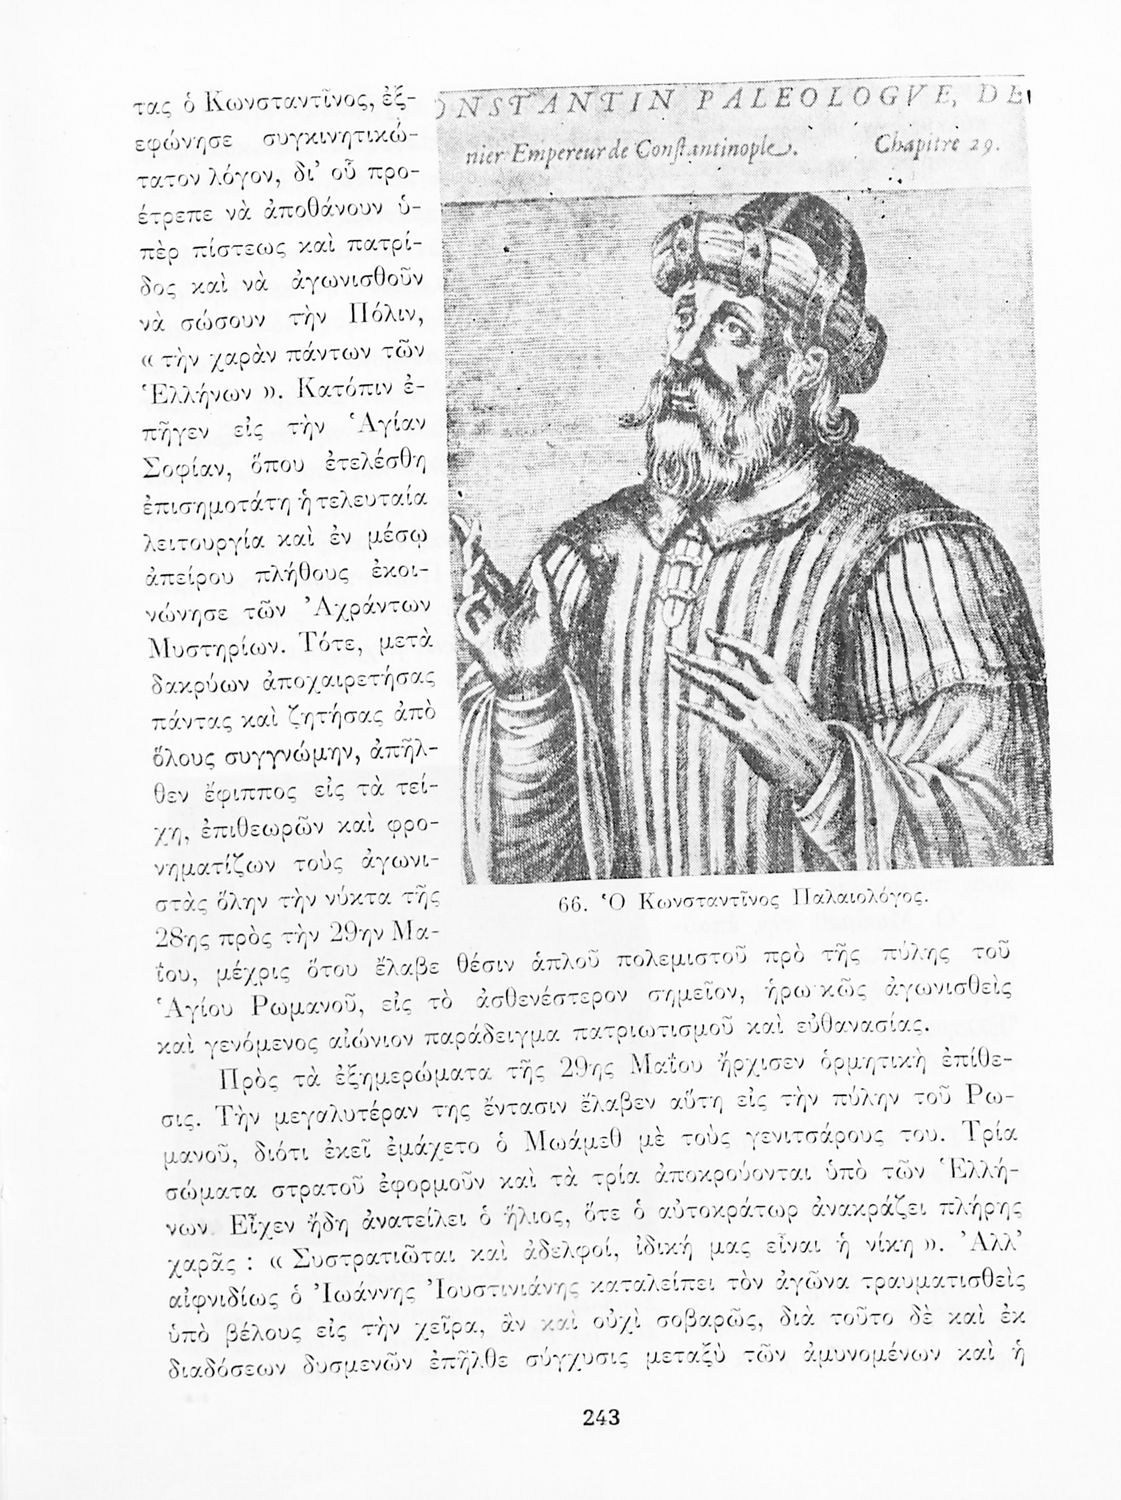 τας ὁ Κωνσταντῖνος, ἐξ-
εφώνησε συγκινητικώ-
τατον λόγον, δι’ οὗ προ-
έτρεπε νὰ ἀποθάνουν ὑ-
πὲρ πίστεως καὶ πατρί-
δος καὶ νὰ ἀγωνισθοῦν
νὰ σώσουν τὴν Πόλιν,
« τὴν χαρὰν πάντων τῶν
Ἑλλήνων ». Κατόπιν ἐ-
πῆγεν εἰς τὴν Ἁγίαν
Σοφίαν, ὅπου ἐτελέσθη
ἐπισημοτάτη ἡ τελευταία
λειτουργία καὶ ἐν μέσῳ
ἀπείρου πλήθους ἐκοι-
νώνησε τῶν Ἀχράντων
Μυστηρίων. Τότε, μετὰ
δακρύων ἀποχαιρετήσας
πάντας καὶ ζητήσας ἀπὸ
ὅλους συγγνώμην, ἀπῆλ-
θεν ἔφιππος εἰς τὰ τεί-
χη, ἐπιθεωρῶν καὶ φρο-
νηματίζων τοὺς ἀγωνι-
στὰς ὅλην τὴν νύκτα τῆς
28ης πρὸς τὴν 29ην Μα-
ΟNSTANTIN PALEOLOGVE, DE
nier Empereur de Constantinople.
Chapitre 29.
66. Ὁ Κωνσταντῖνος Παλαιολόγος.
ΐου, μέχρις ὅτου ἔλαβε θέσιν ἁπλοῦ πολεμιστοῦ πρὸ τῆς πύλης τοῦ
Ἁγίου Ρωμανοῦ, εἰς τὸ ἀσθενέστερον σημεῖον, ἡρωϊκῶς ἀγωνισθεὶς
καὶ γενόμενος αἰώνιον παράδειγμα πατριωτισμοῦ καὶ εὐθανασίας.
Πρὸς τὰ ἐξημερώματα τῆς 29ης Μαΐου ἤρχισεν ὁρμητικὴ ἐπίθε-
σις. Τὴν μεγαλυτέραν της ἔντασιν ἔλαβεν αὕτη εἰς τὴν πύλην τοῦ Ρω-
μανοῦ, διότι ἐκεῖ ἐμάχετο ὁ Μωάμεθ μὲ τοὺς γενιτσάρους του. Τρία
σώματα στρατοῦ ἐφορμοῦν καὶ τὰ τρία ἀποκρούονται ὑπὸ τῶν Ἑλλή-
νων. Εἶχεν ἤδη ἀνατείλει ὁ ἥλιος, ὅτε ὁ αὐτοκράτωρ ἀνακράζει πλήρης
χαρᾶς : « Συστρατιῶται καὶ ἀδελφοί, ἰδική μας εἶναι ἡ νίκη ». Ἀλλ’
αἰφνιδίως ὁ Ἰωάννης Ἰουστινιάνης καταλείπει τὸν ἀγῶνα τραυματισθεὶς
ὑπὸ βέλους εἰς τὴν χεῖρα, ἂν καὶ οὐχὶ σοβαρῶς, διὰ τοῦτο δὲ καὶ ἐκ
διαδόσεων δυσμενῶν ἐπῆλθε σύγχυσις μεταξὺ τῶν ἀμυνομένων καὶ ἡ
243